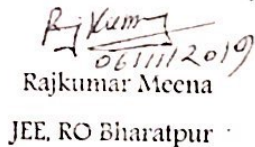 Raj Kumar
06/11/2019
Rajkumar Meena
JEE, RO Bharatpur